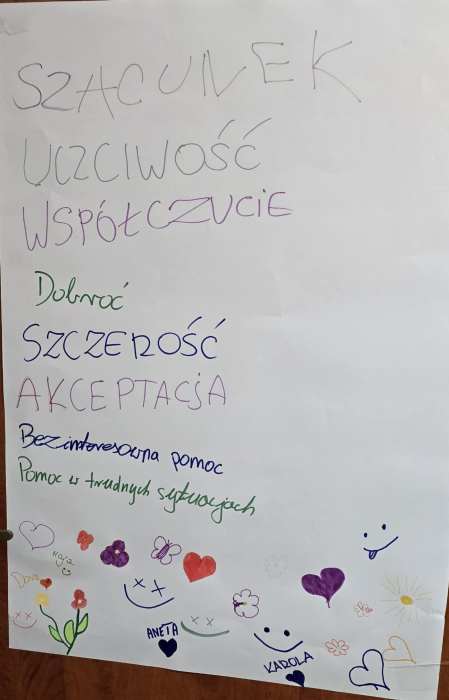 SZACUNEK
UCZCIWOŚĆ
WSPÓŁCZUCIE
Dobroć
SZCZEROŚĆ
AKCEPTACJA
Bezinteresowna pomoc
Pomoc w trudnych sytuacjach
ANETA
KAROLA